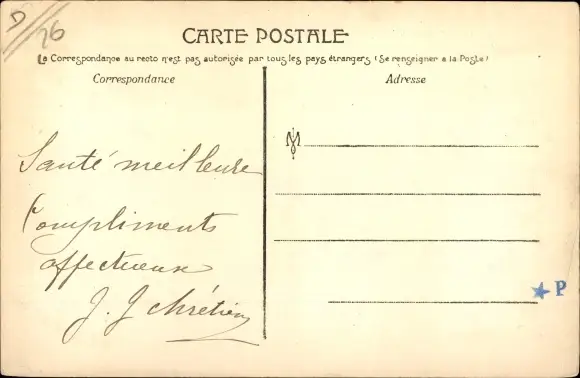 D/26
CARTE POSTALE
La Correspondance au recto n'est pas autorisée par tous les pays étrangers (Se renseigner a la Poste)
Correspondance
Adresse
M
Santé meilleure
Compliments
affectueux
J. J Chrétien
P